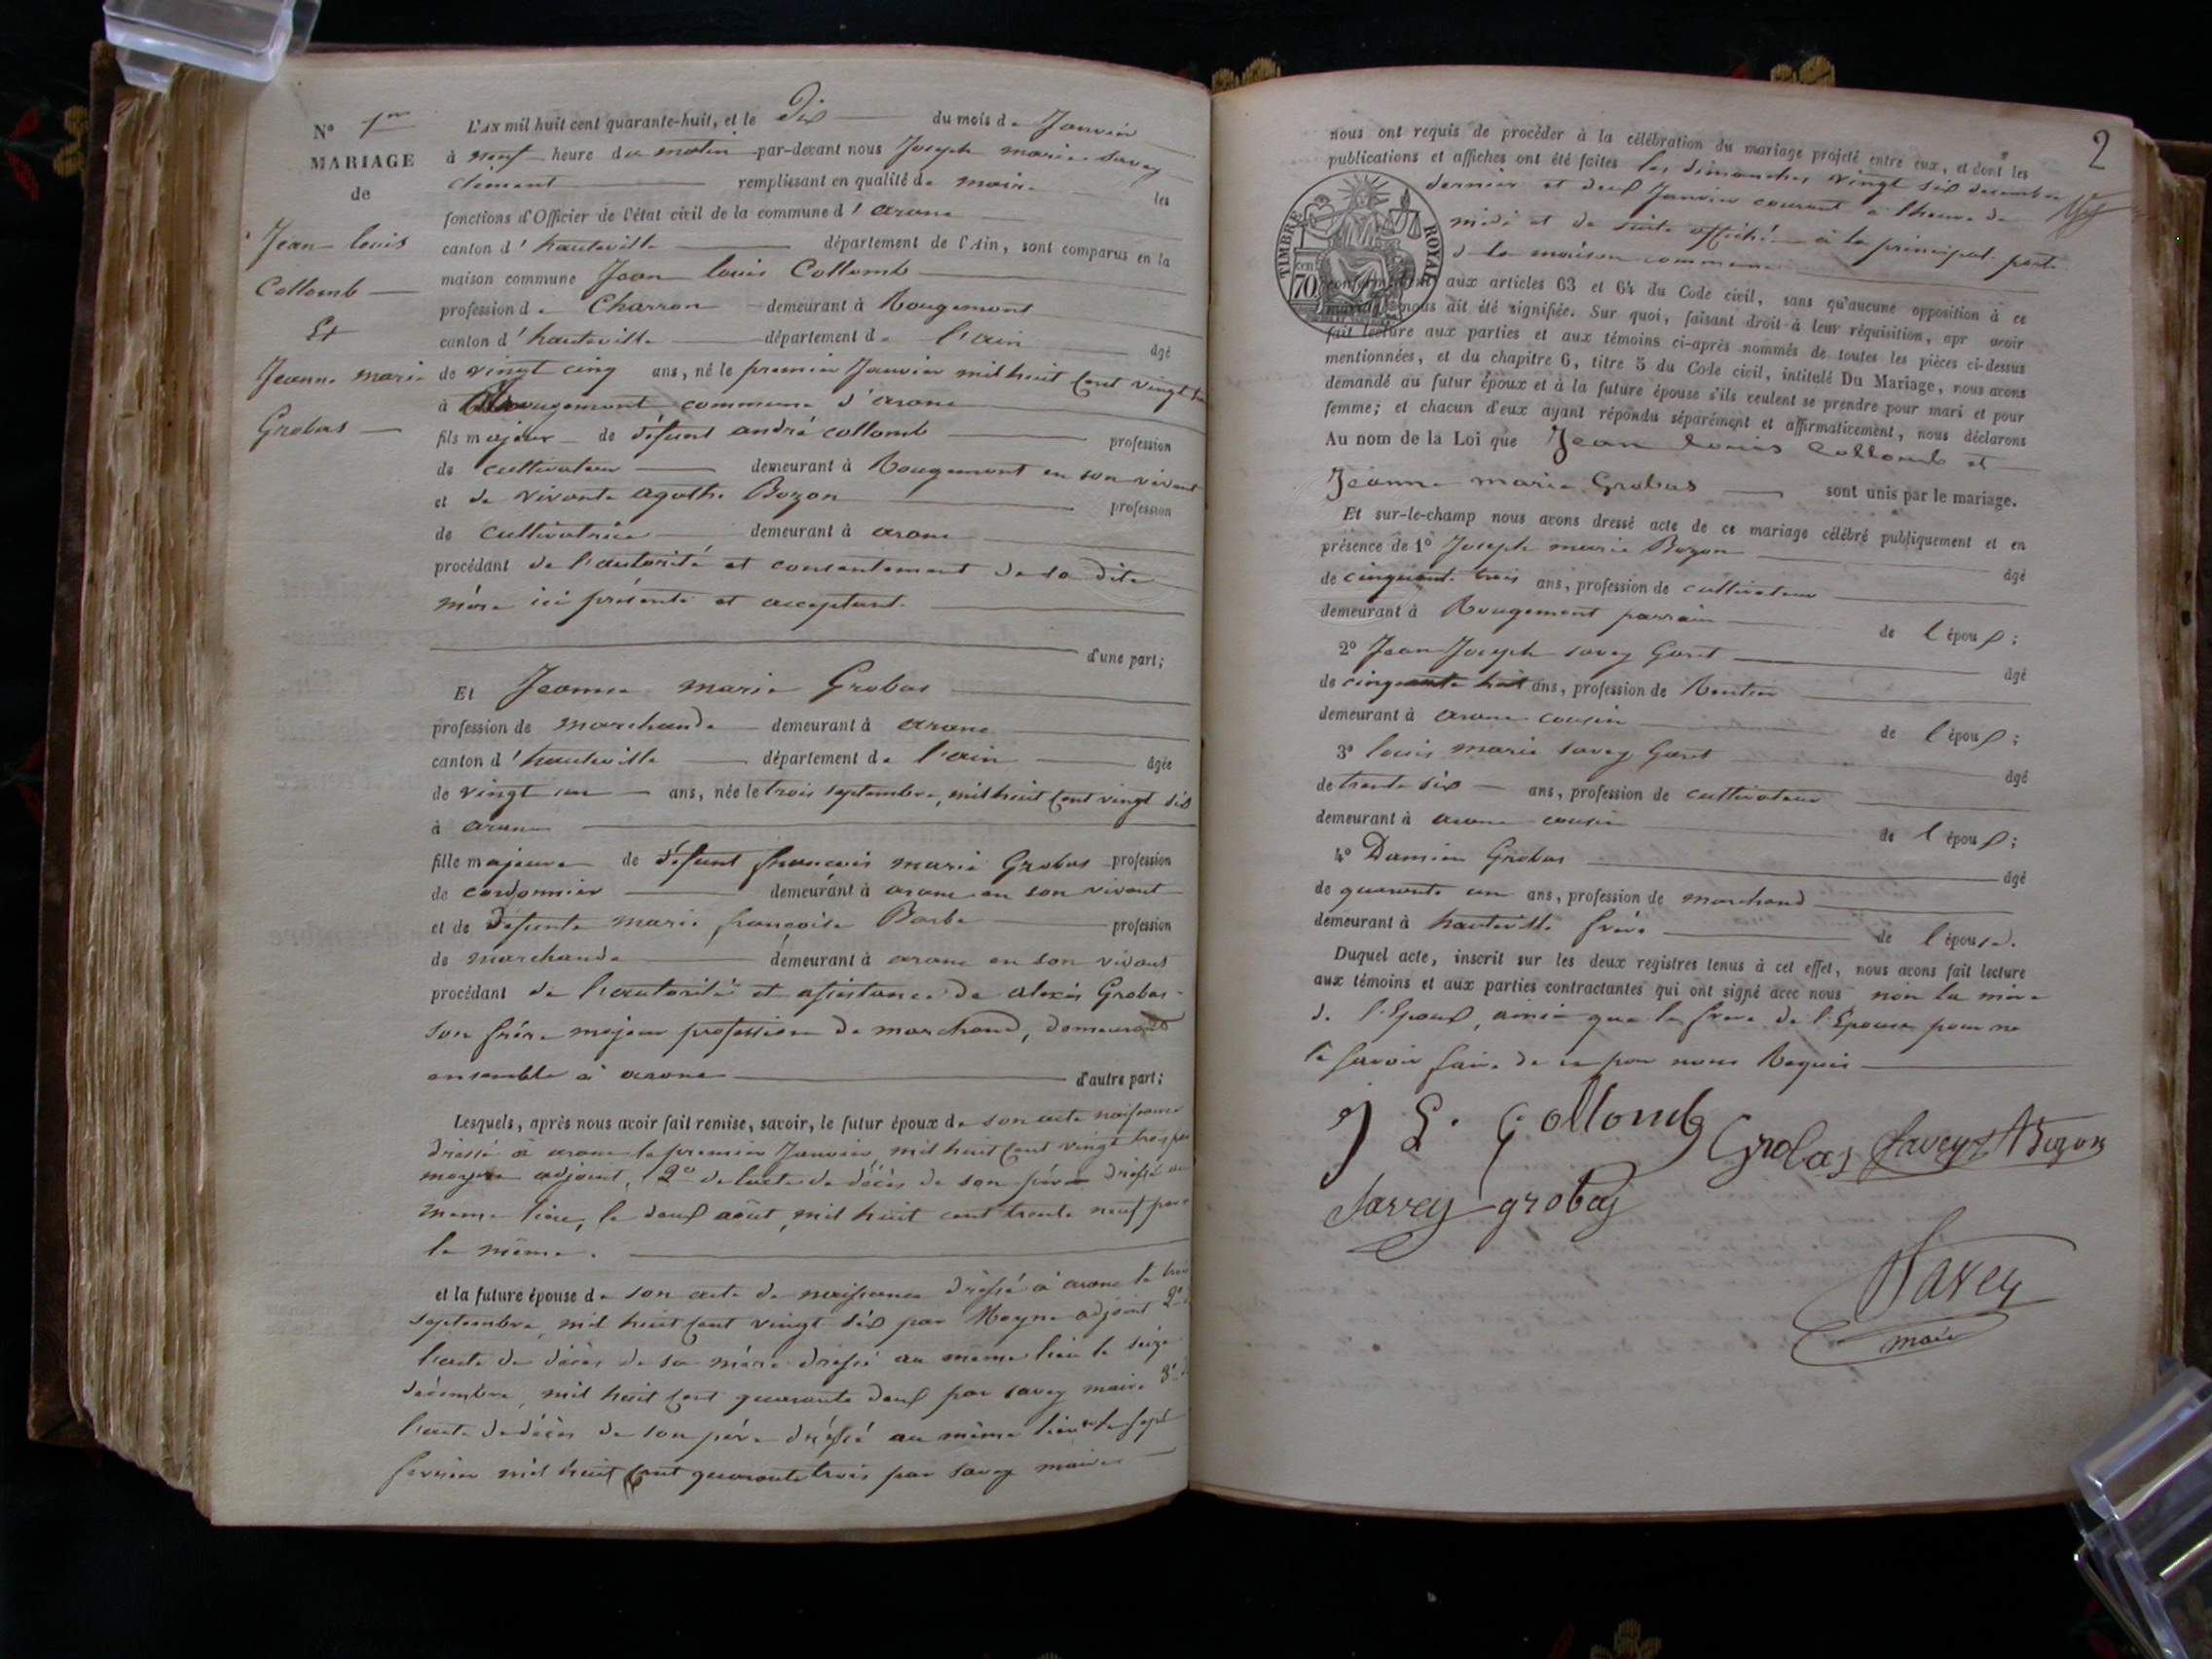 N° 1er
MARIAGE
de
Jean louis
Collomb
Et
Jeanne marie
Grobas
L'AN mil huit cent quarante-huit, et le Dix du mois de Janvier
à neuf heure du matin par-devant nous Joseph marie Savey
clement remplissant en qualité de maire les
fonctions d'Officier de l'état civil de la commune d'aranc
canton d'hauteville département de l'Ain, sont comparus en la
maison commune Jean louis Collomb
profession de Charron demeurant à Rougemont
canton d'hauteville département de l'ain âgé
de vingt cinq ans, né le premier Janvier mil huit cent vingt
à Rougemont, commune d'aranc
fils majeur de défunt andré collomb profession
de cultivateur demeurant à Rougemont en son vivant
et de vivante agathe Bozon profession
de cultivatrice demeurant à aranc
procédant de l'autorité et consentement de sa dite
mère ici présente et acceptant.
d'une part;
Et Jeanne marie Grobas
profession de marchande demeurant à aranc
canton d'hauteville département de l'ain âgée
de vingt un ans, née le trois septembre, mil huit cent vingt six
à aranc
fille majeure de défunt françois marie Grobas profession
de cordonnier demeurant à aranc en son vivant
et de défunte marie françoise Barbe profession
de marchande demeurant à aranc en son vivant
procédant de l'autorité et assistance de alexis Grobas
son frère majeur profession de marchand, demeurant
ensemble à aranc d'autre part;
Lesquels, après nous avoir fait remise, savoir, le futur époux de son acte naissance
dressé à aranc le premier Janvier, mil huit cent vingt trois par
moyne adjoint, 2° de l'acte de décès de son père dressé au
meme lieu, le deux août, mil huit cent trente neuf par
le même.
et la future épouse de son acte de naissance dressé à aranc le trois
septembre, mil huit cent vingt six par Moyne adjoint 2°
l'acte de décès de sa mère dressé au même lieu le seize
décembre, mil huit cent quarante deux par savey maire 3°
l'acte de décès de son père dressé au même lieu le sept
fevrier mil huit cent quarante trois par savey maire
2
nous ont requis de procéder à la célébration du mariage projeté entre eux, et dont les
publications et affiches ont été faites les dimanches vingt six decembre
dernier et deux Janvier courant à l'heure de
midi et de suite affiché à la principale porte
d la maison commune
TIMBRE ROYAL
cen 70
conformément aux articles 63 et 64 du Code civil, sans qu'aucune opposition à ce
mariage nous ait été signifiée. Sur quoi, faisant droit à leur réquisition, apr avoir
fait lecture aux parties et aux témoins ci-après nommés de toutes les pièces ci-dessus
mentionnées, et du chapitre 6, titre 5 du Code civil, intitulé Du Mariage, nous avons
demandé au futur époux et à la future épouse s'ils veulent se prendre pour mari et pour
femme; et chacun d'eux ayant répondu séparément et affirmativement, nous déclarons
Au nom de la Loi que Jean louis Collomb et
Jeanne marie Grobas sont unis par le mariage.
Et sur-le-champ nous avons dressé acte de ce mariage célébré publiquement et en
présence de 1° Joseph marie Bozon âgé
de cinquante trois ans, profession de cultivateur
demeurant à Rougemont parrain de l'époux;
2° Jean Joseph savey Garet âgé
de cinquante huit ans, profession de Rentier
demeurant à aranc cousin de l'époux;
3° louis marie savey Garet âgé
de trente six ans, profession de cultivateur
demeurant à aranc cousin de l'époux;
4° Damien Grobas âgé
de quarante un ans, profession de marchand
demeurant à hauteville frère de l'épouse.
Duquel acte, inscrit sur les deux registres tenus à cet effet, nous avons fait lecture
aux témoins et aux parties contractantes qui ont signé avec nous non la mère
de l'Epoux, ainsi que le frere de l'Epouse pour ne
le savoir faire de ce par nous Requis
J L. Collomb Grobas Savey Bozon
Savey grobas
Savey
maire